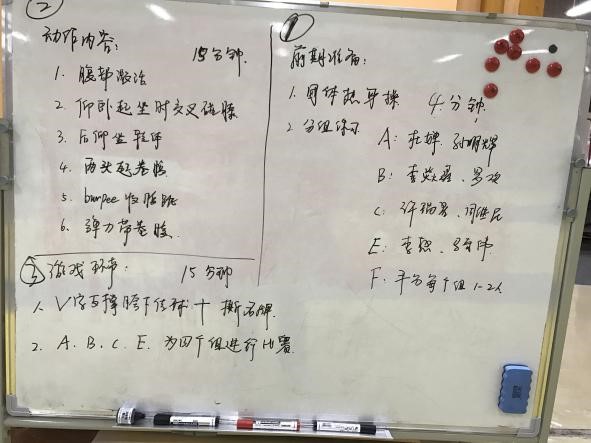 ①
前期准备:
1. 团体热身操 4分钟
2. 分组练习
A: 杜坤、孙明辉
B: 李
C: 许瑞芳、
E: 李
F: 平分每个组1-2人
②
动作内容: 15分钟
1. 腹部激活
2. 仰卧起坐时交叉碰膝
3. 后仰坐转体
4. 两头起卷腹
5. burpee收腹跳
6. 弹力带卷腹
③游戏环节: 15分钟
1. V字支撑胯下传球+撕名牌
2. A、B、C、E、为四个组进行比赛